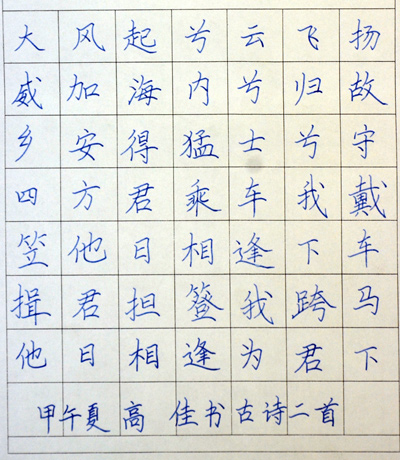 大风起兮云飞扬
威加海内兮归故
乡安得猛士兮守
四方君乘车我戴
笠他日相逢下车
揖君担簦我跨马
他日相逢为君下
甲午夏高佳书古诗二首